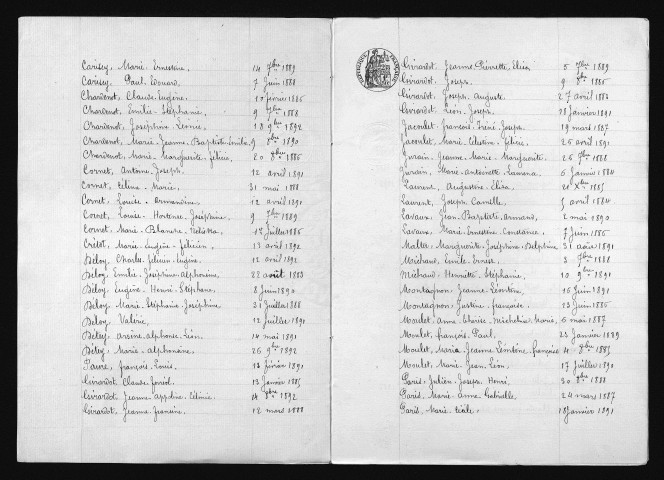 Carisey, Marie Ernestine 14 7bre 1889
Carisey, Paul Edouard 7 Juin 1888
Chardenot, Claude Eugène 10 février 1886
Chardenot, Emilie Stéphanie, 9 7bre 1888
Chardenot, Joséphine Léonie 18 9bre 1892
Chardenot, Marie Jeanne Baptiste Emilie 9 8bre 1890
Chardenot, Marie Marguerite Félicie, 20 8bre 1886
Cornet, Antoine Joseph 12 avril 1891
Cornet, Célina Marie, 31 mai 1888
Cornet, Louise Armandine 12 avril 1890
Cornet, Louise Hortense Joséphine 9 7bre 1889
Cornet, Marie Blanche 17 Juillet 1886
Marie Eugène Félicien, 13 avril 1892
Déloy, Charles Félicien Eugène 12 avril 1892
Déloy, Emilie Joséphine Alphonsine, 22 août 1883
Déloy, Eugène Henri Stéphane, 8 Juin 1890
Déloy, Marie Stéphanie Joséphine 31 Juillet 1888
Déloy, Valérie, 12 Juillet 1891
Déloy, Arsène Alphonse Léon 14 mai 1891
Déloy, Marie Alphonsine 26 9bre 1892
Faivre, François Louis 13 février 1891
Girardot Claude 13 Janvier 1885
Girardot, Jeanne Appoline Célinie 14 8bre 1892
Girardot, Jeanne 12 mars 1888
RÉPUBLIQUE FRANÇAISE
Girardot, Jeanne Pierrette Elisa 5 1889
Girardot, Joseph 9 8bre 1886
Girardot, Joseph Auguste 27 avril 1884
Girardot, Léon Joseph 28 Janvier 1891
François Irénée Joseph 19 mars 1887
Marie Célestine Félicie 26 avril 1891
Jurain, Jeanne Marie Marguerite 26 9bre 1888
Jurain, Marie Antoinette 6 Janvier 1884
Laurent, Augustine Elisa 20 Xbre 1885
Laurent, Joseph Camille 5 avril 1884
Lavaux, Jean Baptiste Armand, 2 mai 1890
Lavaux, Marie Ernestine Constance 7 Juin 1886
Marguerite Joséphine Delphine 31 août 1891
Michaud, Emile Ernest 3 7bre 1888
Michaud, Henriette Stéphanie 10 9bre 1891
Montagnon, Jeanne Léontine 16 Juin 1891
Montagnon, Justine Françoise 13 Juin 1886
Moulet, Anne Thérèse Micheline Marie, 6 mai 1887
Moulet, François Paul 23 Janvier 1889
Moulet, Maria Jeanne Léontine Françoise 4 8bre 1885
Moulet, Marie Jean Léon 17 Juillet 1890
Paris Julien Joseph Henri 30 8bre 1888
Paris, Marie Anne Gabrielle, 24 mars 1887
Paris, Marie 18 Janvier 1891